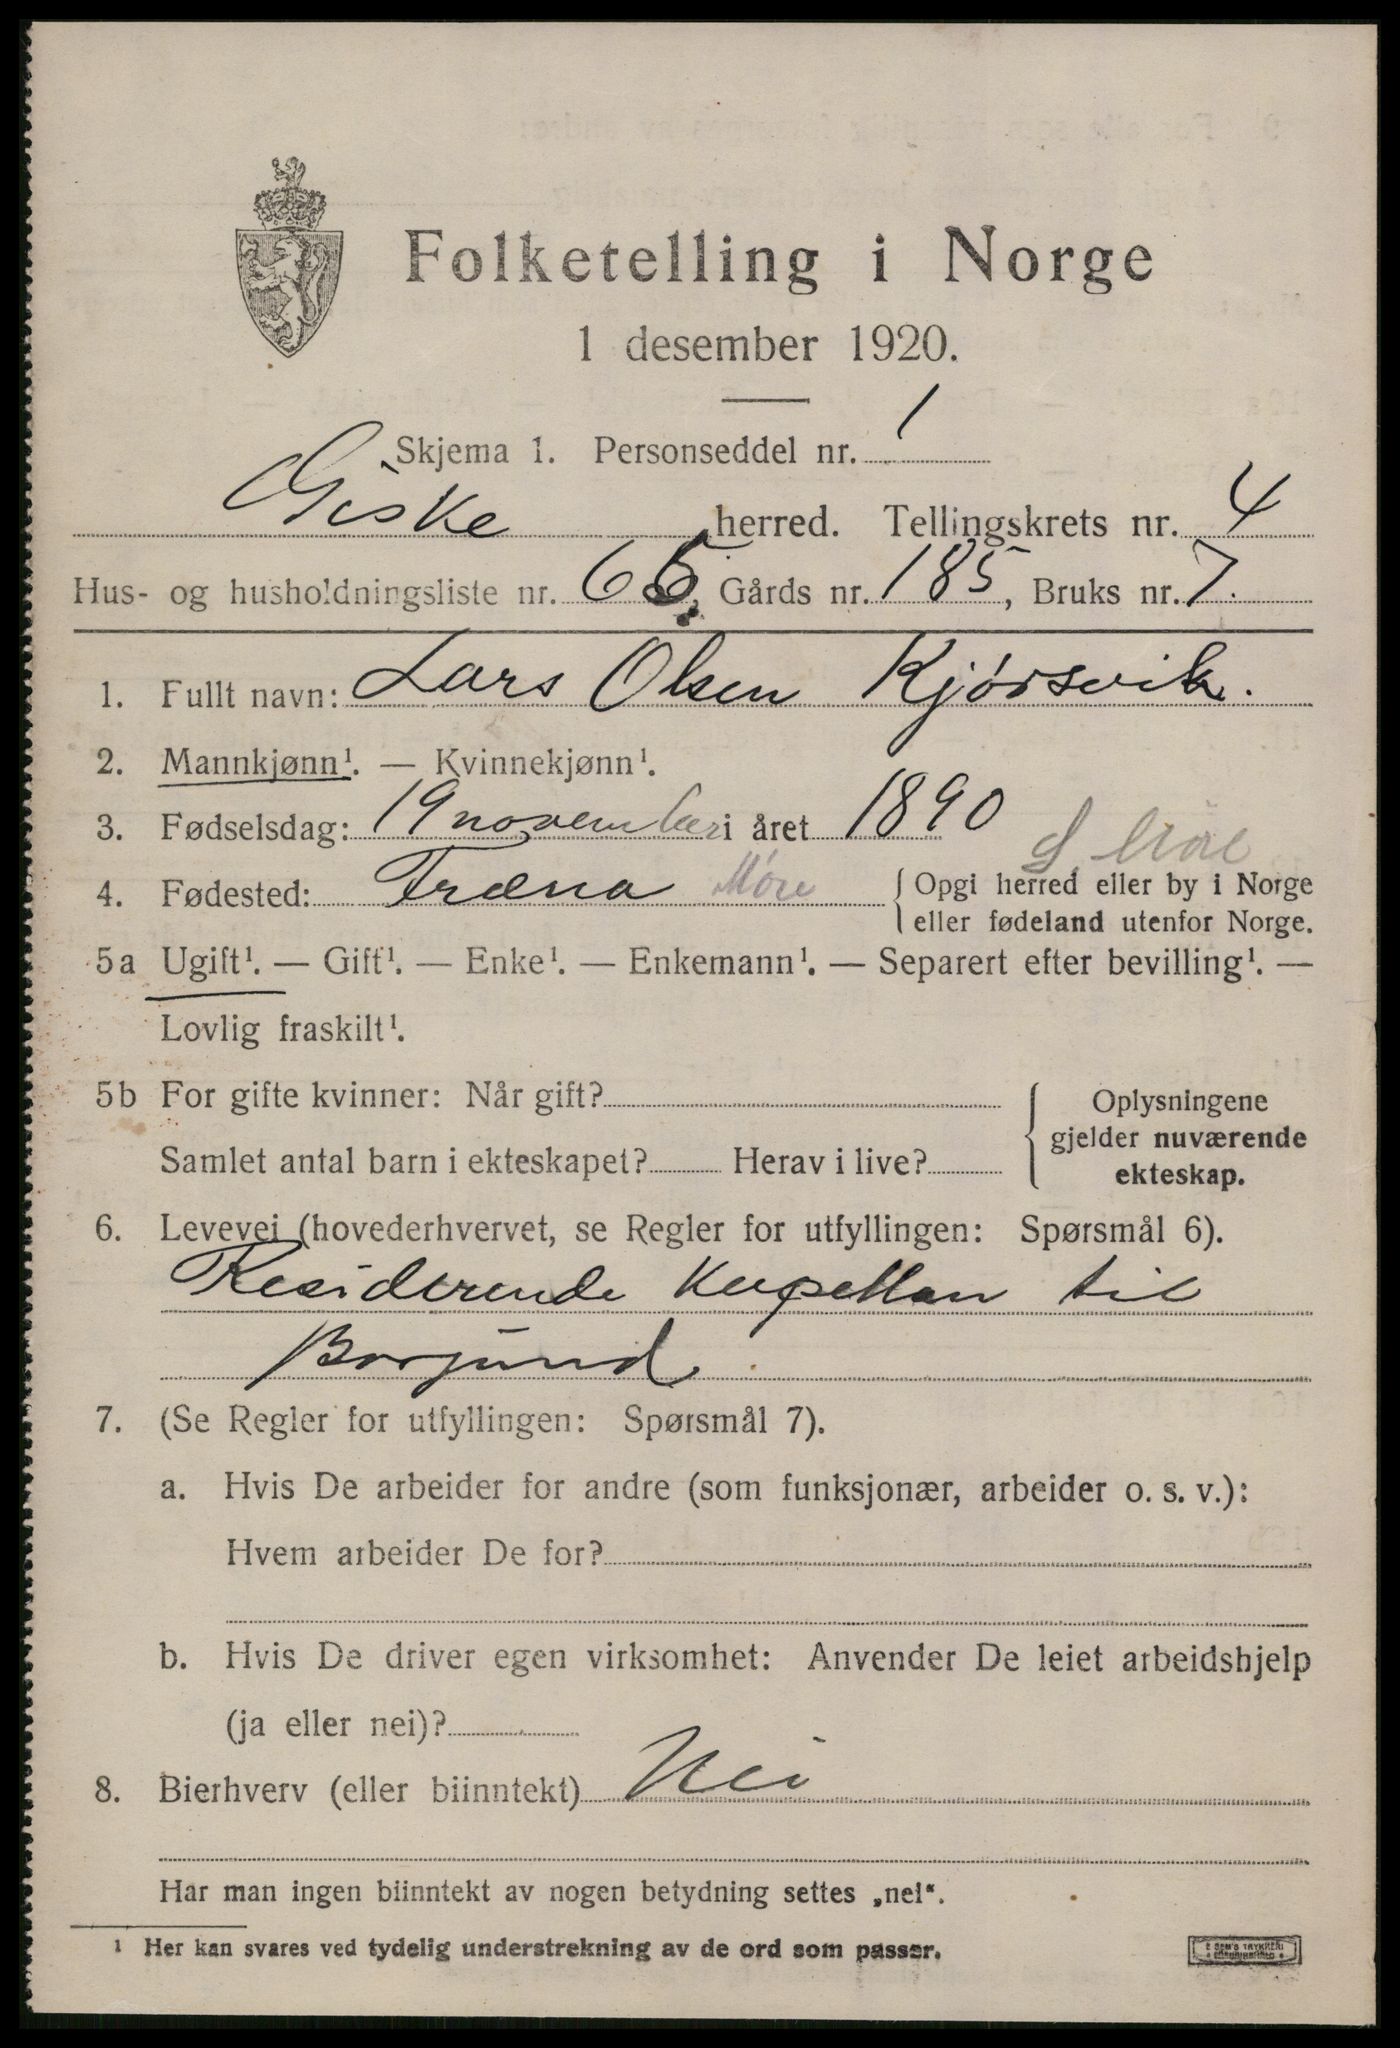 Folketelling i Norge
1 desember 1920.
Skjema 1. Personseddel nr. 1
Giske herred. Tellingskrets nr. 4
Hus- og husholdningsliste nr. 65, Gårds nr. 185, Bruks nr. 7.
1. Fullt navn: Lars Olsen Kjørsvik.
2. Mannkjønn¹. — Kvinnekjønn¹.
3. Fødselsdag: 19 november i året 1890
4. Fødested: Fræna Møre { Opgi herred eller by i Norge
eller fødeland utenfor Norge.
5a Ugift¹. — Gift¹. — Enke¹. — Enkemann¹. — Separert efter bevilling¹. —
Lovlig fraskilt¹.
5b For gifte kvinner: Når gift?
Samlet antal barn i ekteskapet? Herav i live?
{ Oplysningene
gjelder nuværende
ekteskap.
6. Levevei (hovederhvervet, se Regler for utfyllingen: Spørsmål 6).
Residerende Kapellan til
Borgund
7. (Se Regler for utfyllingen: Spørsmål 7).
a. Hvis De arbeider for andre (som funksjonær, arbeider o. s. v.):
Hvem arbeider De for?
b. Hvis De driver egen virksomhet: Anvender De leiet arbeidshjelp
(ja eller nei)?
8. Bierhverv (eller biinntekt) Nei
Har man ingen biinntekt av nogen betydning settes „nei“.
¹ Her kan svares ved tydelig understrekning av de ord som passer.